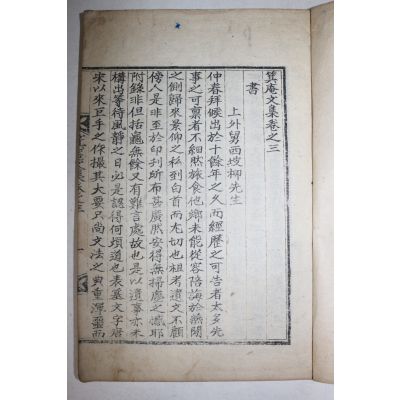 箕庵文集卷之三
書
上外舅西坡柳先生
仲春拜候出於十餘年之久而經歷之可告者太多先
事之可稟者不細然旅食他鄉未能從容陪誨於無間
之側歸來景仰之私到白首而尤切也祖考遺文不顧
傍人是非至於印刊所布甚廣然安得無掃塵之憾耶
附錄非但括龜無餘又有難言處故也是以遺事亦未
構出等待風靜之日必是認得何境道也表墓文字唐
宋以來巨手之作撮其大要只尚文法之典重渾